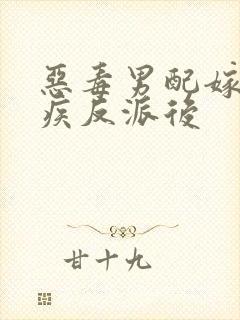 惡毒男配嫁
疾反派後
甘十九